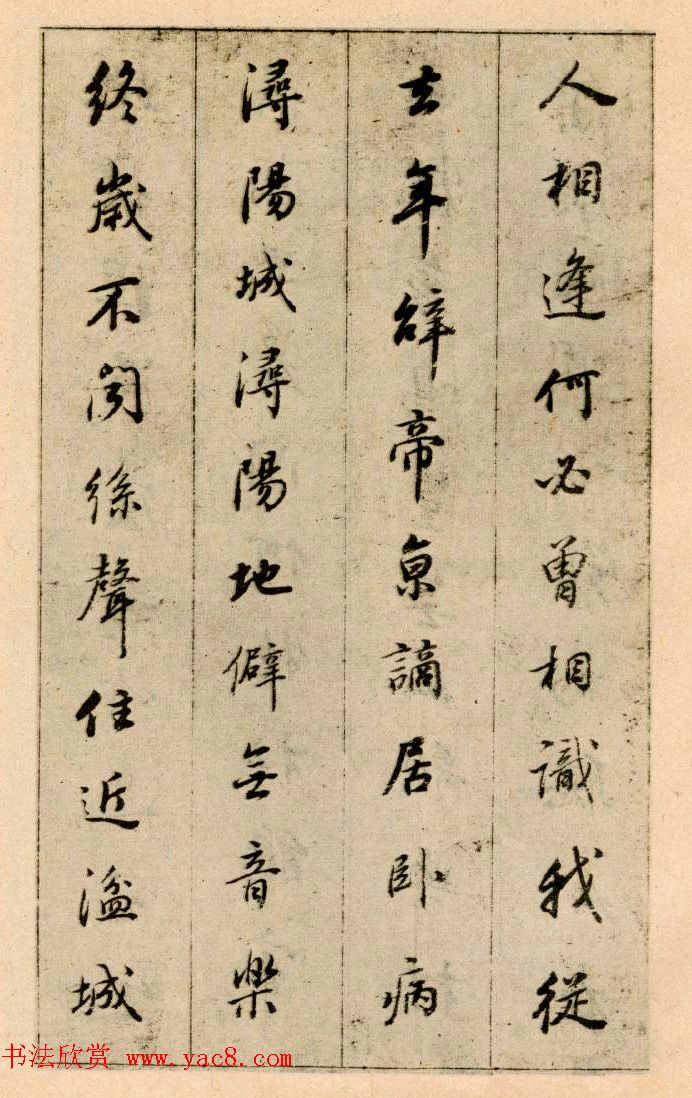 人相逢何必曾相識我從
去年辭帝京謫居卧病
潯陽城潯陽地僻無音樂
終歲不聞絲聲住近湓城
书法欣赏 www.yac8.com